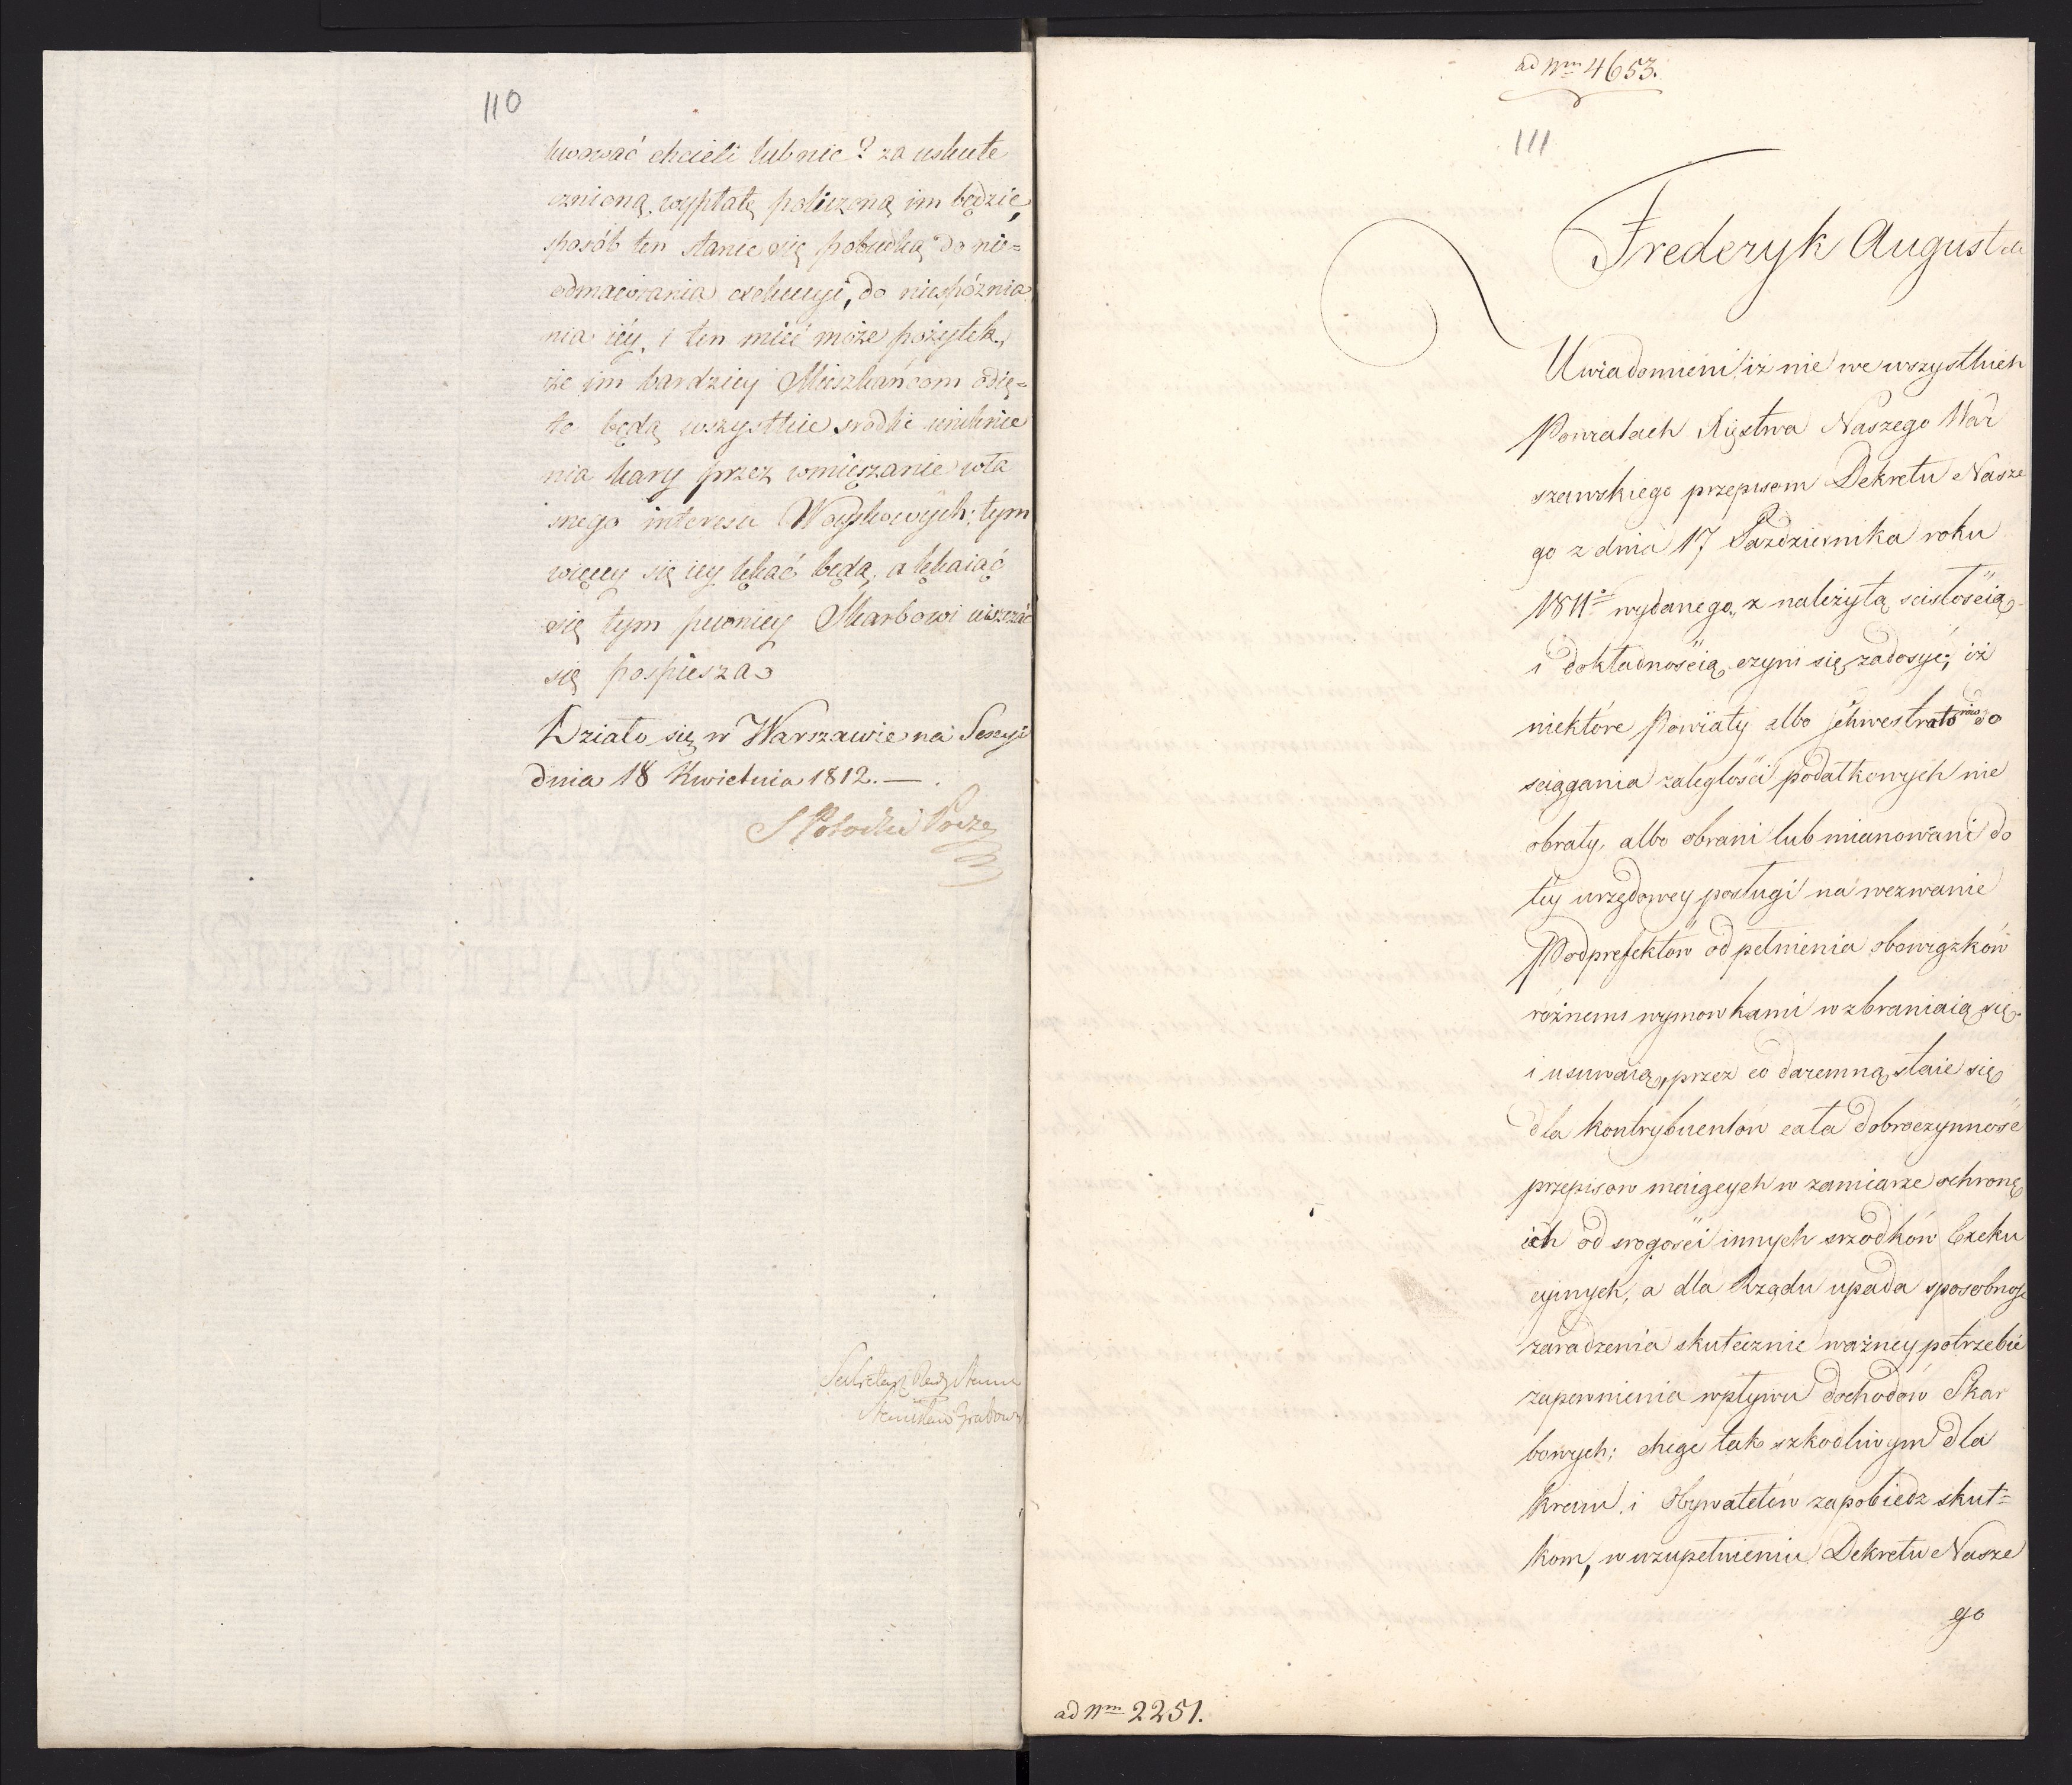 110
kwować chcieli lub nie? za uskute
cznioną wypłatę policzoną im będzie,
sposób ten stanie się pobudką do nie=
odmawiania exekucyi, do niespóźnia
nia iéy, i ten mieć może pożytek,
że im bardziey Mieszkańcom odię=
te będą wszystkie srodki uniknie
nia kary przez wmięszanie wła
snego interesu Woyskowych; tym
więcey się iey lękać będą, a lękaiąc
się tym pewniey Skarbowi uiszczać
się pospieszą
Działo się w Warszawie na Sessyi
dnia 18 Kwietnia 1812. —
S Potocki Prezes
Sekretarz Rady Stanu
Stanisław Grabowski
ad Nrm 4653.
111
Frederyk August etc
Uwiadomieni iż nie we wszystkich
Powiatach Xięstwa Naszego War
szawskiego przepisom Dekretu Nasze
go z dnia 17 Pazdziernika roku
1811o wydanego, z należytą scisłością
i dokładnością czyni się zadosyć; iż
niektóre Powiaty albo Sekwestratorów do
sciągania zaległości podatkowych nie
obrały, albo obrani lub mianowani do
téy urzędowey posługi na wezwanie
Podprefektów od pełnienia obowiązków
różnemi wymowkami wzbraniaią się
i usuwaią, przez co daremną staie się
dla kontrybuentów cała dobroczynność
przepisow maiących w zamiarze ochronę
ich od srogości innych srzodków Exeku
cyinych, a dla Rządu upada sposobność
zaradzenia skutecznie ważney potrzebie
zapewnienia wpływu dochodów Skar
bowych; chcąc tak szkodliwym dla
kraiu i Obywatelów zapobiedz skut=
kom, w uzupełnieniu Dekretu Nasze
go
ad Nrm 2251.